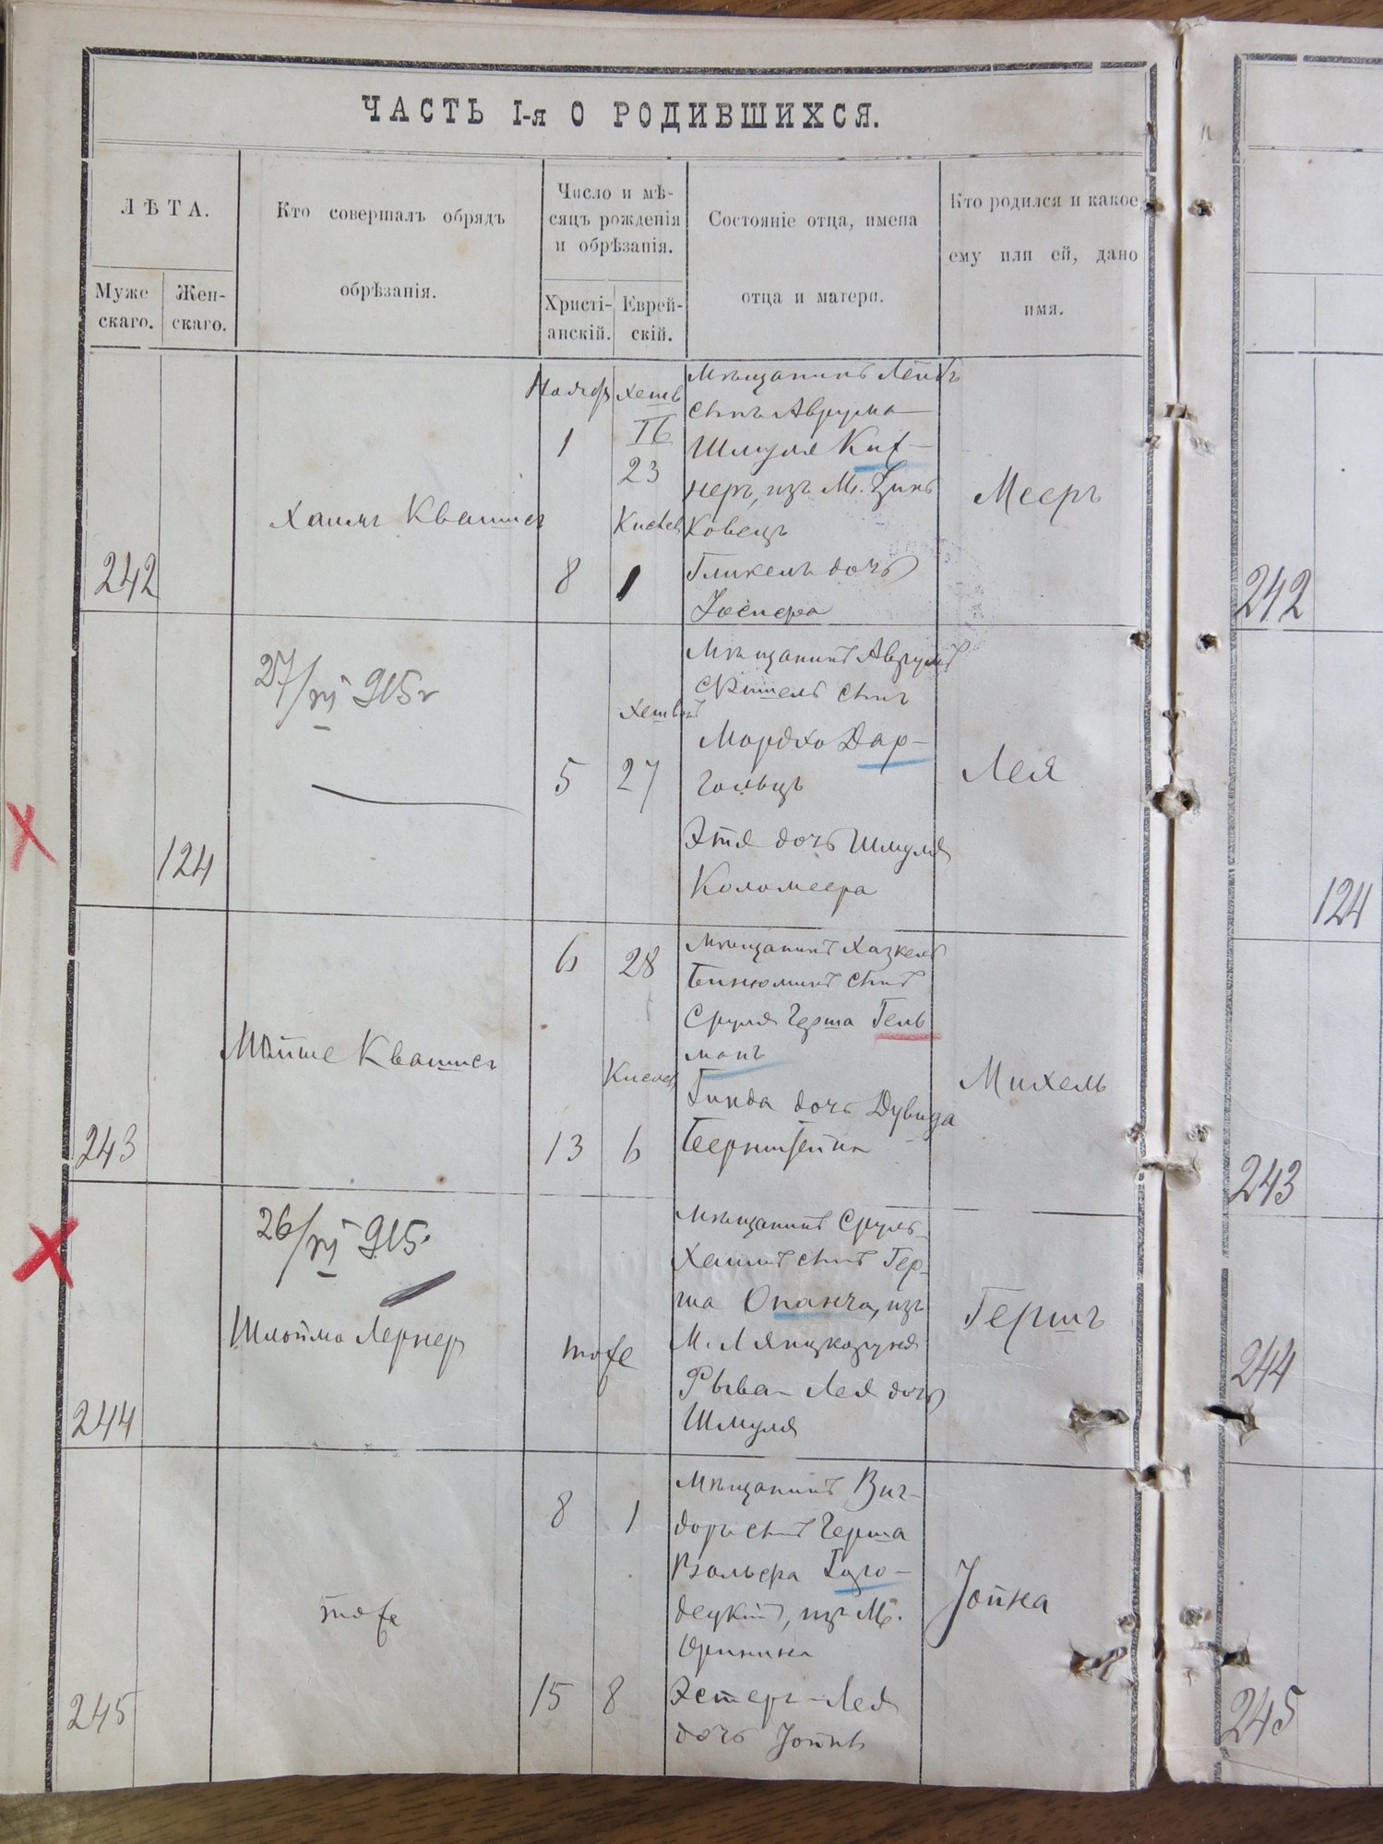 ЧАСТЬ I-я О РОДИВШИХСЯ.
ЛѢТА.
Муже
скаго.
Жен-
скаго.
Кто совершалъ обрядъ
обрѣзанія.
Число и мѣ-
сяцъ рожденія
и обрѣзанія.
Христі-
анскій.
Еврей-
скій.
Состояніе отца, имена
отца и матери.
Кто родился и какое
ему или ей, дано
имя.
242
Хаимъ Квашис
Ноябр
1
8
Хешв
23
Кислев
1
Мѣщанинъ Лейбъ
сынъ Аврума
Шмуля Кит-
неръ, изъ М. Зинь
ковецъ
Гликель дочь
Мееръ
242
27/VI 915 г
124
5
Хешван
27
Мѣщанинъ Аврумъ
сынъ
Мордхо Дар-
гольцъ
Этя дочь Шмуля
Коломеера
Лея
124
243
Мойше Квашис
6
13
28
Кислев
6
Мѣщанинъ Хазкель
Бинюминъ сынъ
Сруля Герша Гель
манъ
Гинда дочь Дувида
Бернштейна
Михель
243
26/VI 915
244
Шлойма Лернер
тоже
Мѣщанинъ Сруль
Хаимъ сынъ Гер-
ша Опанча, изъ
М. Лянцкоруня
Рыва-Лея дочь
Шмуля
Гершъ
244
245
тоже
8
15
1
8
Мѣщанинъ Виг-
доръ сынъ Герша
Вольфа Горо-
децкій, изъ М.
Оринина
Эстеръ-Лея
дочь Іойны
Іойна
245